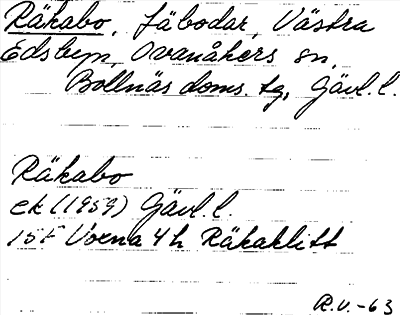 Räkabo, Fäbodar, Västra
Edsbyn, Ovanåkers sn,
Bollnäs doms. tg, Gävl. l.
Räkabo
ek (1959) Gävl. l.
15F Voxna 4h Räkaklitt
R.V.-63